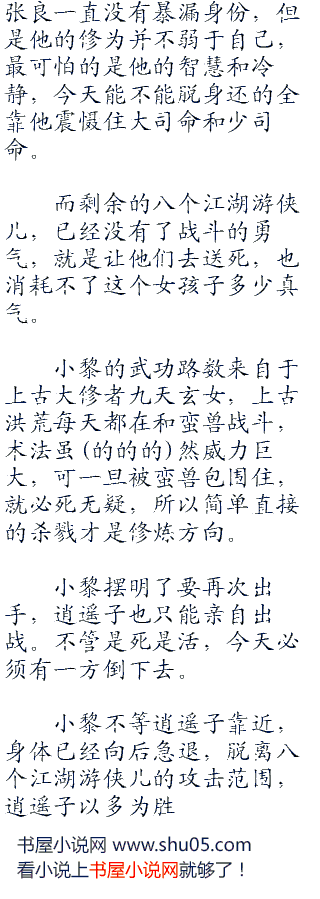 张良一直没有暴漏身份，但
是他的修为并不弱于自己，
最可怕的是他的智慧和冷
静，今天能不能脱身还的全
靠他震慑住大司命和少司
命。
而剩余的八个江湖游侠
儿，已经没有了战斗的勇
气，就是让他们去送死，也
消耗不了这个女孩子多少真
气。
小黎的武功路数来自于
上古大修者九天玄女，上古
洪荒每天都在和蛮兽战斗，
术法虽(的的的)然威力巨
大，可一旦被蛮兽包围住，
就必死无疑，所以简单直接
的杀戮才是修炼方向。
小黎摆明了要再次出
手，逍遥子也只能亲自出
战。不管是死是活，今天必
须有一方倒下去。
小黎不等逍遥子靠近，
身体已经向后急退，脱离八
个江湖游侠儿的攻击范围，
逍遥子以多为胜
书屋小说网 www.shu05.com
看小说上书屋小说网就够了！